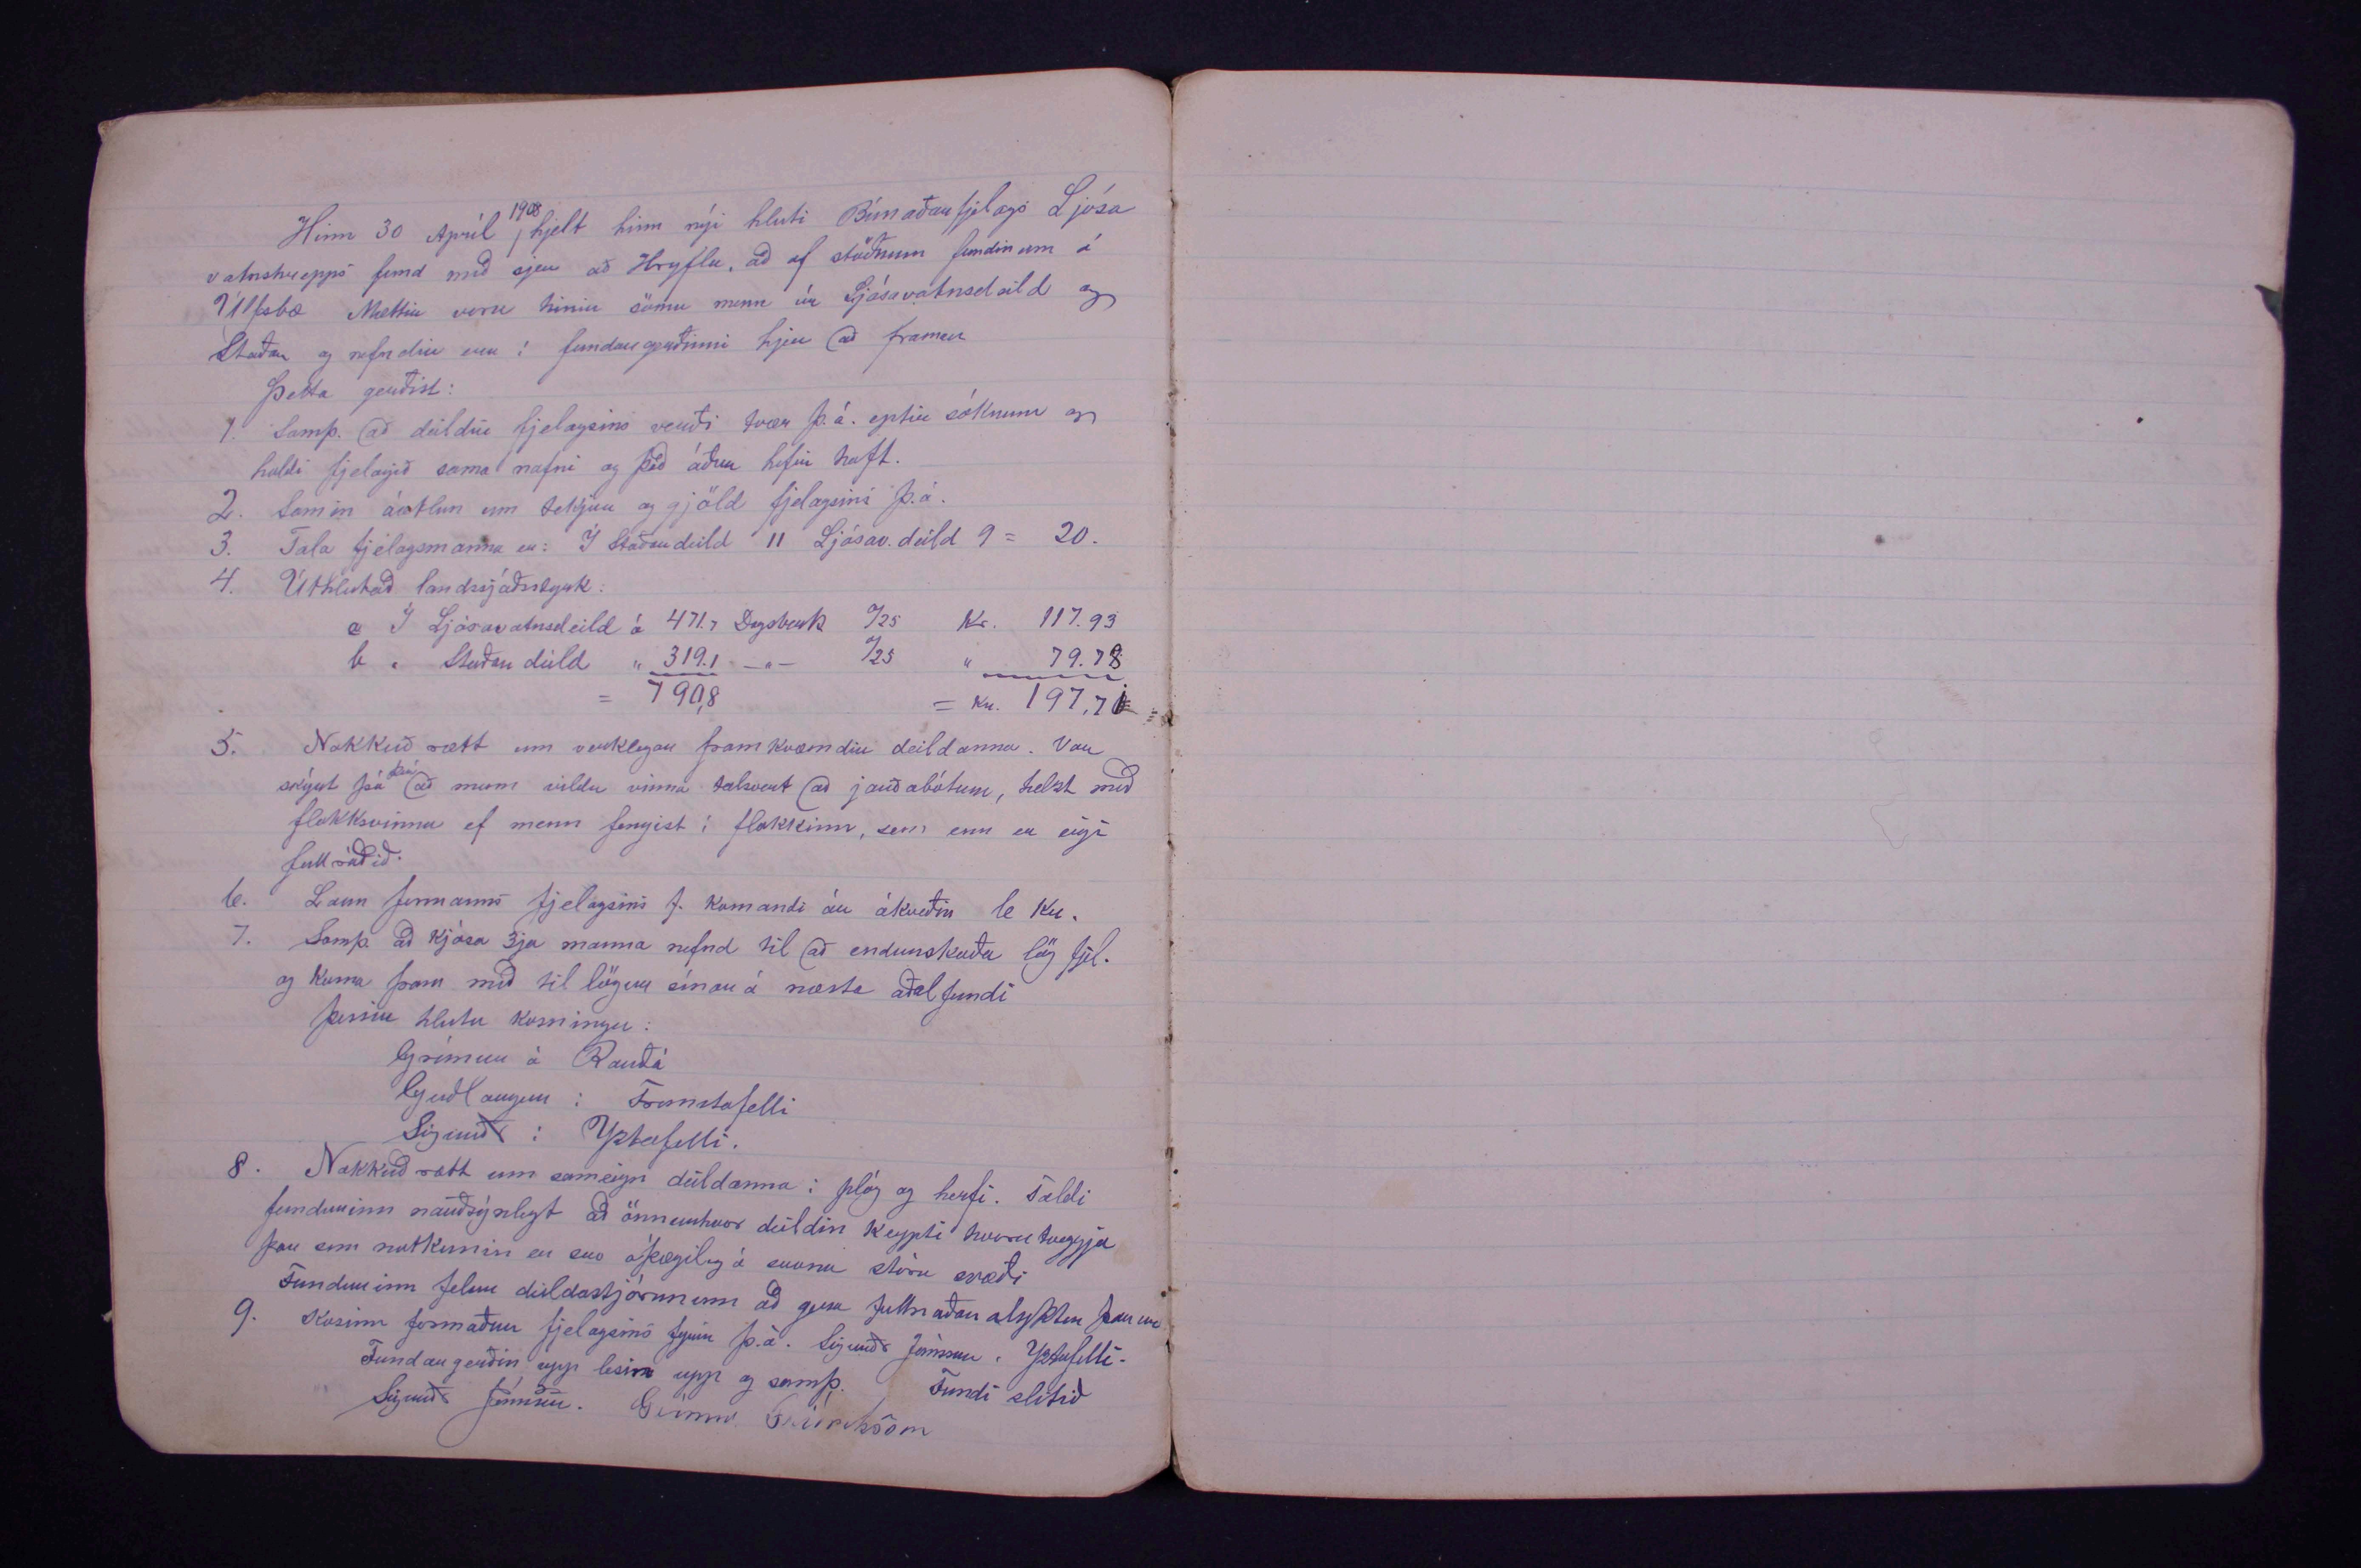 Hinn 30 Apríl 1908 hjelt hinn nýi hluti Búnaðarfjelags Ljósa
vatnshrepps fund með sjer að Hryflu, að af stöðnum fundinum á
Úlfsbæ Mættir voru hinir sömu menn úr Ljósavatnsdeild og
Staðar og nefndir eru í fundargerðinni hjer að framan
Þetta gerðist:
1. Samþ. að deildir fjelagsins verði tvær þ.á. eptir sóknum og
haldi fjelagið sama nafni og það áður hefir haft.
2. Samin áætlun um tekjur og gjöld fjelagsins þ.á.
3. Tala fjelagsmanna er: Í Staðardeild 11 Ljósav.deild 9 = 20.
4. Úthlutað landssjóðsstyrk:
a Í Ljósavatnsdeild á 471.7 Dagsverk á/25 Kr. 117.93
b " Staðardeild " 319.1 —"— á/25 " 79.78
= 790,8 = Kr. 197,71
5. Nokkuð rætt um verklegar framkvæmdir deildanna. Var
skýrt frá því að menn vildu vinna talsvert að jarðabótum, helzt með
flokksvinnu ef menn fengist í flokkinn, sem enn er eigi
fullráðið.
6. Laun formanns fjelagsins f. komandi ár ákveðin 6 Kr.
7. Samþ. að kjósa 3ja manna nefnd til að endurskoða lög fjel.
og koma fram með tillögur sínar á næsta aðalfundi
þessir hlutu kosningu:
Grímur á Rauðá
Guðlaugur í Fremstafelli
Sigurðr í Yztafelli.
8. Nokkuð rætt um sameign deildanna í plóg og herfi. Taldi
fundurinn nauðsýnlegt að önnurhvor deildin keypti hvorutveggja
þar sem notkunin er svo óþægileg á svona stóru svæði
Fundurinn felur deildastjórunum að gera fullnaðar alyktun þar um
9. Kosinn formaður fjelagsins fyrir þ.á. Sigurðr Jónsson í Yztafelli.
Fundargerðin upp lesin upp og samþ. Fundi slitið
Sigurðr Jónsson. Grímur Friðriksson